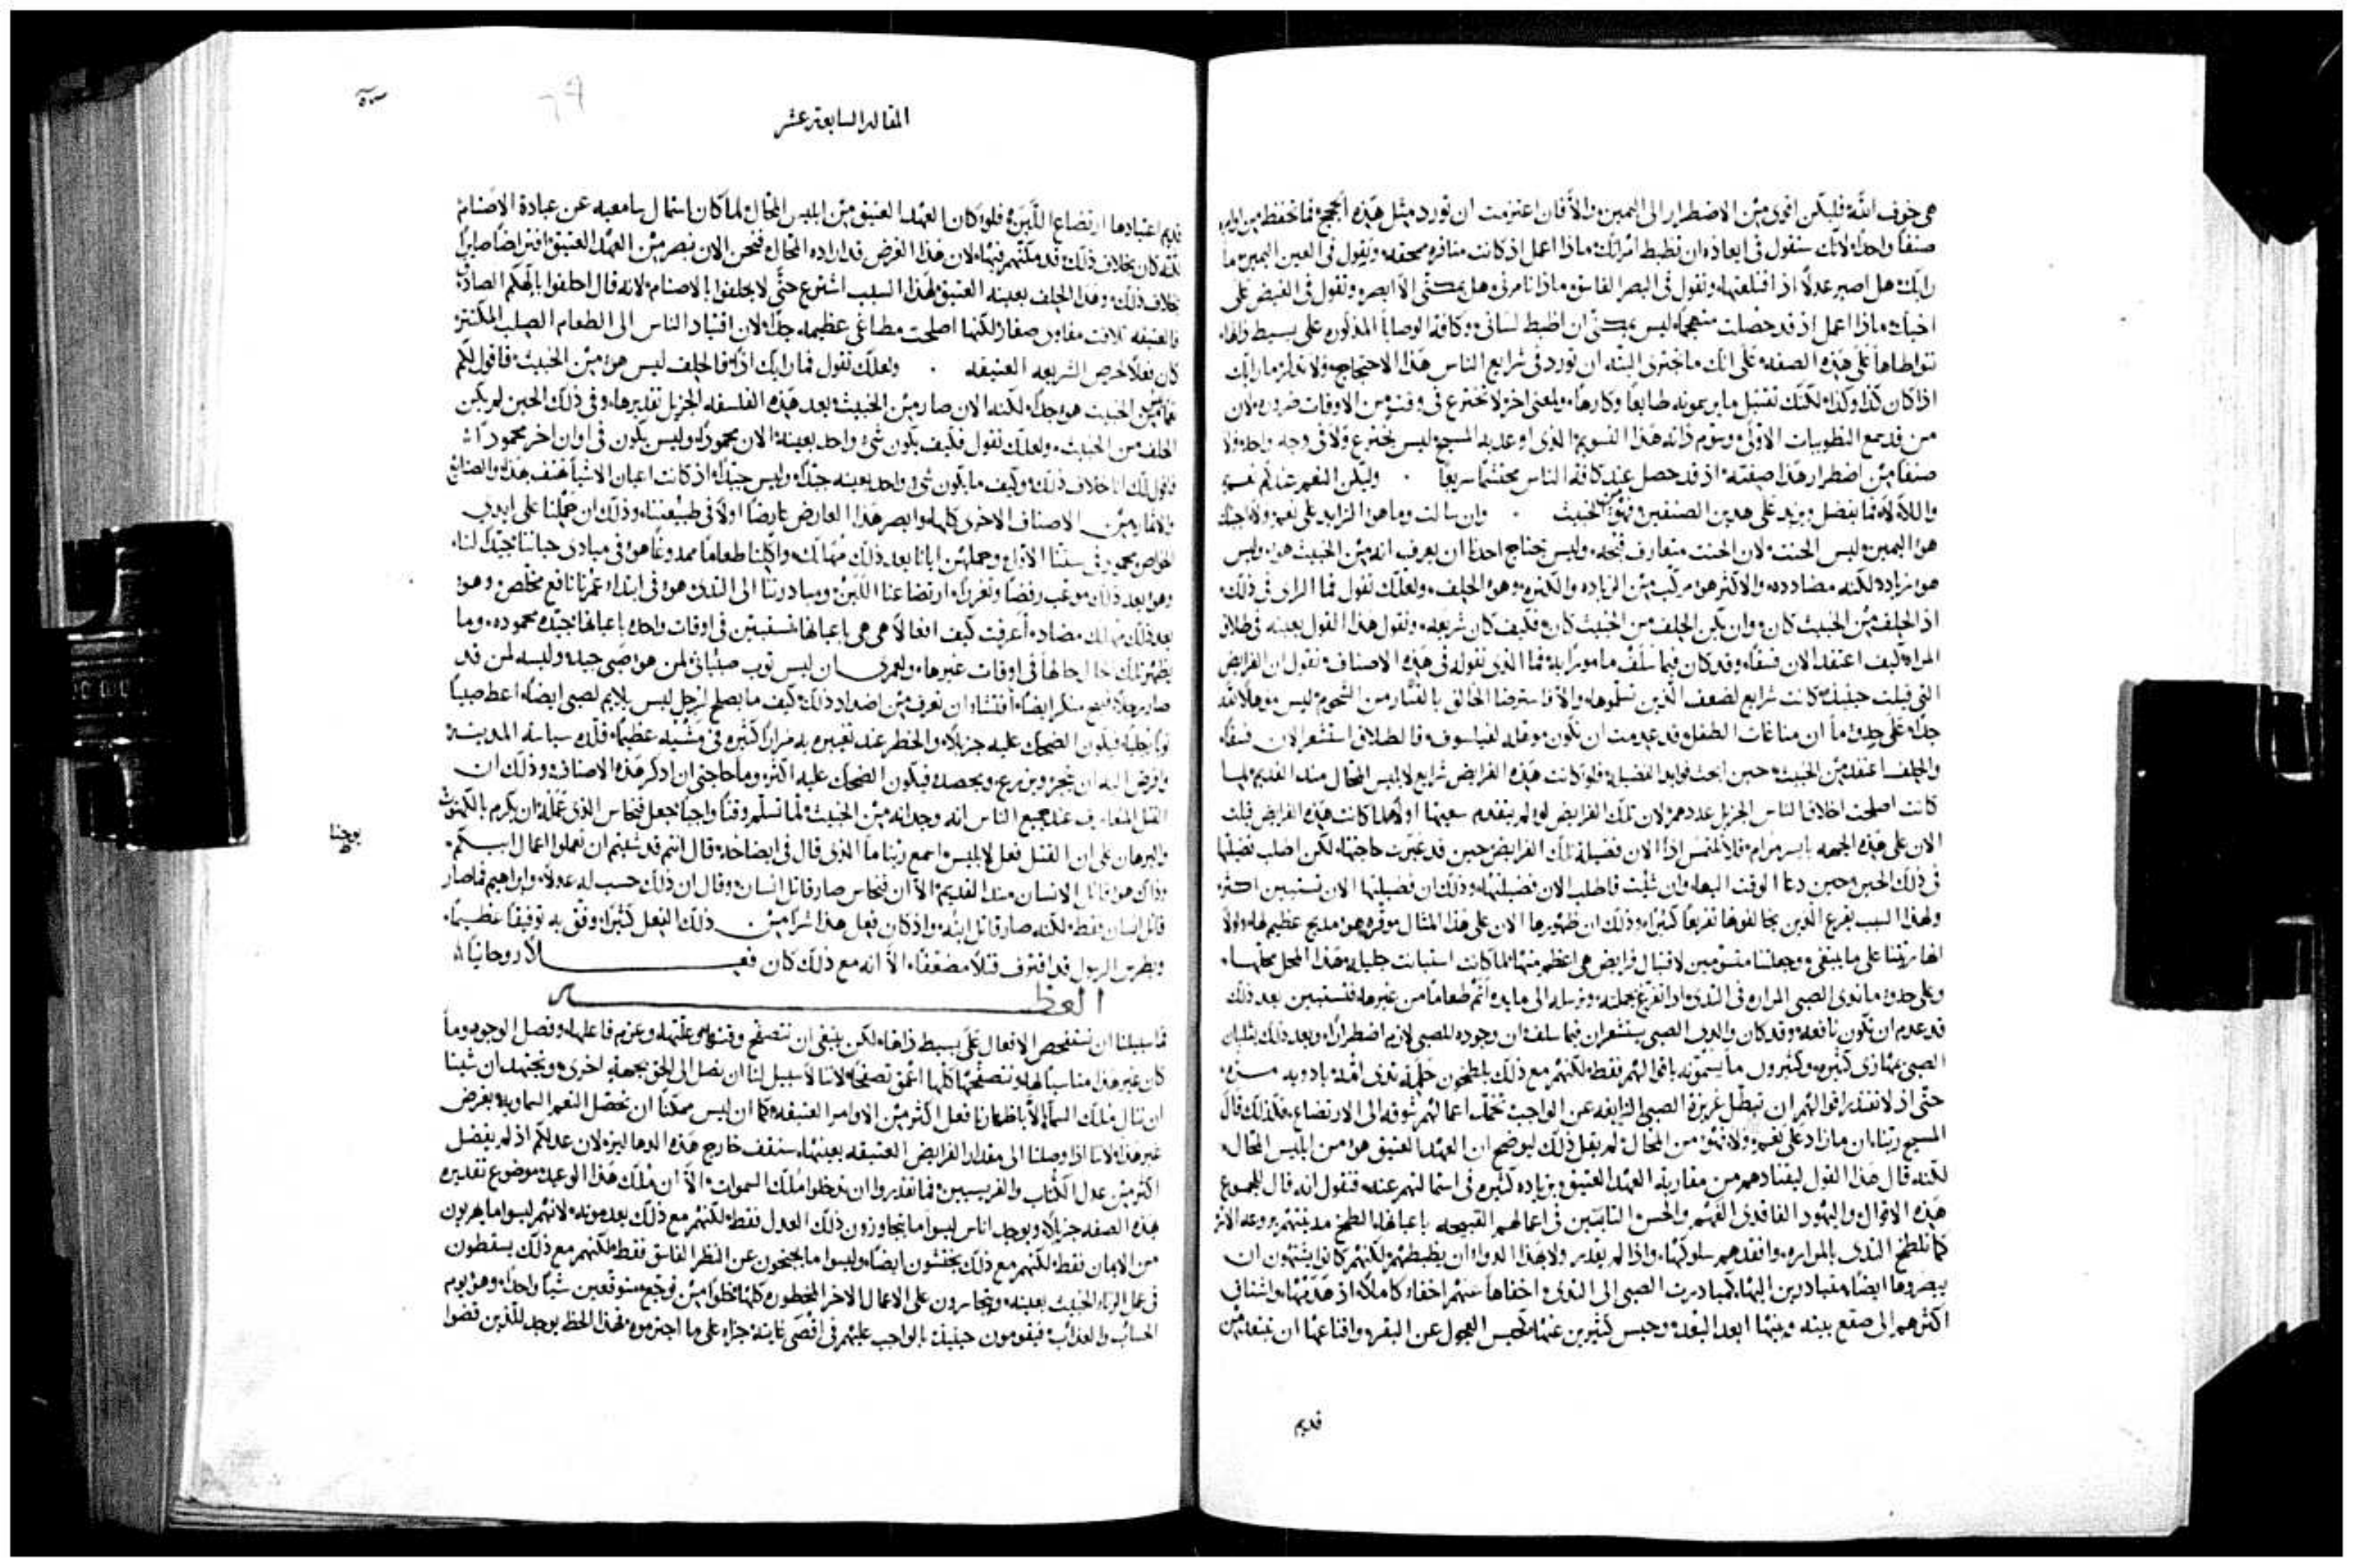 هي خوف الله فليكن اقوى من الاضطرار الى اليمين والا فان اعتزمت ان تورد مثل هذه الحجج فما تحفظ من اوامره
صنفا واحدا لانك ستقول في ابعاده ان تظبط امراتك ماذا اعمل اذ كانت منافره محقه وتقول في العين اليمين ما
رايك هل اصير عدلا اذا اقتلعتها وتقول في البصر الفاسق وماذا تامرني هل يمكنني الا ابصر وتقول في الغيض على
اخيك ماذا اعمل اذ قد حصلت متهجما ليس يمكنني ان اظبط لساني وكافة الوصايا المذكوره على بسيط ذاتها
تتواطاها على هذه الصفه على انك ما تجترى البته ان تورد في شرايع الناس هذا الاحتجاج ولا تقل فما رايك
اذا كان كذا وكذا لكنك تقتبل ما يرسمونه طايعا وكارها ولمعنى اخر لا تخترع في وقت من الاوقات ضروره لان
من قد سمع التطويبات الاولى وقوم ذاته هذا التقويم الذي اوعد به المسيح ليس يخترع ولا في وجه واحد ولا
صنفا من اضطرار هذا صيغته اذ قد حصل عند كافة الناس محتشما سريعا . وليكن النعم عندكم نعم
واللا لا فما يفضل ويزيد على هذين الصنفين فهو من الخبيث . وان سالت وما هو الزايد على نعم ولا اجبتك
هو اليمين وليس الحنث لان الحنث متعارف قبحه وليس يحتاج احدنا ان يعرف انه من الخبيث هو وليس
هو زياده لكنه مضادده والاكثر هو مركب من الزياده والكثره وهو الحلف ولعلك تقول فما الراى في ذلك
اذ الحلف من الخبيث كان وان يكن الحلف من الخبيث كان فكيف كان شريعه وتقول هذا القول بعينه في طلاق
المراه كيف اعتقد الان فسقا وقد كان فيما سلف مامورا به فما الذي نقوله في هذه الاصناف نقول ان الفرايض
التي قيلت حينئذ كانت شرايع لضعف الذين تسلموها والا فاسترضا الخالق بالقتار من الشحوم ليس موهلا لله
جدا على حذو ما ان مناغات الطفل قد عدمت ان تكون موهله لفيلسوف فالطلاق استشعر الان فسقا
والحلف اعتقد من الخبيث حين ابحث فوايد الفضيله فلو كانت هذه الفرايض شرايع لابليس المحال منذ القديم لما
كانت اصلحت اخلاق الناس الجزيل عددهم لان تلك الفرايض لو لم يتقدم سعيها اولا لما كانت هذه الفرايض قبلت
الان على هذه الجهه بايسر مرام فلا تلتمس اذا الان فضيلة تلك الفرايض حين قد عبرت حاجتها لكن اطلب فضيلتها
في ذلك الحين وحين دعا الوقت اليها وان شئت فاطلب الان فضيلتها وذلك ان فضيلتها الان تستبين اكثر
ولهذا السبب يقرع الذين يخالفوها تقريعا كثيرا وذلك ان ظهورها الان على هذا المثال موقره هو مديح عظيم لها ولولا
انها ربتنا على ما ينبغي وجعلتنا مقتومين لاقتبال فرايض هي اعظم منها لما كانت استبانت جليله هذا المحل محلها
وعلى حذو ما ندى الصبي المران في الثدي اذا تفرغ بجملته وترسله الى مايده اتم طعاما من غيرها فتستبين بعد ذلك
قد عدم ان تكون نافعه وقد كان والدى الصبي يستشعران فيما سلف ان وجوده للصبي لازم اضطرارا وبعد ذلك يثلبان
الصبي عنها زى كثيره وكثيرون ما يسمونه باقوالهم فقط لكنهم مع ذلك يلطخون حلمة ثدى امه بادويه مره
حتى اذ لا تقتدر اقوالهم ان تبطل غريزة الصبي الزايغه عن الواجب تخمد اعمالهم شوقه الى الارتضاع فكذلك قال
المسيح ربنا ان ما زاد على نعم ولا فهو من المحال لم يقل ذلك ليوضح ان العهد العتيق هو من ابليس المحال
لكنه قال هذا القول ليقتادهم من مقاربة العهد العتيق بزياده كثيره في استمالتهم عنه فتقول انه قال للجموع
هذه الاقوال واليهود الفاقدى الفهم والحس الثابتين في اعمالهم القبيحه باعيانها الطخ مدينتهم بروعه الاسر
كما تلطخ الثدي بالمراره وافقدهم سلوكها واذا لم يقدر ولا بهذا الدوا ان يظبطهم لكنهم كانوا يشتهون ان
يبصروها ايضا متبادرين اليها كمبادرت الصبي الى الثدي اخفاها عنهم اخفاء كاملا اذ هدمها واشناف
اكثرهم الى صقع بينه وبينها ابعد البعد وحبس كثيرين عنها كحبس العجول عن البقر واقناعها ان تبتعد من
قديم
المقاله السابعة عشر
قديم اعتيادها ارتضاع اللبن فلو كان العهد العتيق من ابليس المحال لما كان استمال سامعيه عن عبادة الاصنام
لكنه كان بخلاف ذلك قد مكنهم فيها لان هذا الغرض قد اراده المحال فنحن الان نبصر من العهد العتيق افتراضا صايرا
بخلاف ذلك وهذا الحلف بعينه العتيق لهذا السبب اشترع حتى لا يحلفوا بالاصنام لانه قال احلفوا بالهكم الصادق
فالعتيقه تلافت مفاوز صغار لكنها اصلحت مطاغي عظيمه جدا لان اقتياد الناس الى الطعام الصلب المكتنز
كان فعلا لحرص الشريعه العتيقه . ولعلك تقول فما رايك اذا فالحلف ليس هو من الخبيث فاقول لكم
نعم من الخبيث هو جدا لكنه الان صار من الخبيث بعد هذه الفلسفه الجزيل تقديرها وفي ذلك الحين لم يكن
الحلف من الخبيث ولعلك تقول فكيف يكون شى واحد بعينه الان محمودا وليس يكون في اوان اخر محمودا
فاقول لك انا خلاف ذلك وكيف ما يكون شى واحد بعينه جيدا وليس جيدا اذ كانت اعيان الاشيا تهتف بهذا والصنايع
والاثمار من الاصناف الاخرى كلها وابصر هذا العارض عارضا اولا في طبيعتنا وذلك ان حملنا على ايدي
الحواضن محمود في سننا الاول وحملهن ايانا بعد ذلك مهالك واكلنا طعاما ممدوغا هو في مبادى حياتنا جيد لنا
وهو بعد ذلك موعب رفضا وتعزرا وارتضاعنا اللبن ومبادرتنا الى الثدى هو في ابتداء عمرنا نافع مخلص وهو
بعد ذلك مهالك مضاد اعرفت كيف افعالا هي هي باعيانها تستبين في اوقات واحده باعيانها جيده محموده وما
يظهر تلك الحال حالها في اوقات غيرها ولعمرى ان لبس ثوب صبياني لمن هو صبي جيد ولبسه لمن قد
صار رجلا قبيح منكر ايضا افتشاء ان تعرف من اضداد ذلك كيف ما يصلح لرجل ليس يلايم لصبي ايضا اعط صبيا
ثوبا رجليا فيكون الضحك عليه جزيلا والخطر عند تعبيره به مرارا كثيره في مشيه عظيما قلده سياسة المدينه
وافرض اليه ان يتجر ويزرع ويحصد فيكون الضحك عليه اكثر وما حاجتي ان اذكر هذه الاصناف وذلك ان
القتل المتعارف عند جميع الناس انه وجدانه من الخبيث لما تسلم وقتا واجبا جعل فنحاس الذي عمله ان يكرم بالكهنوت
والبرهان على ان القتل فعل لابليس اسمع ربنا ما الذي قال في ايضاحه قال انتم قد شئتم ان تعملوا اعمال ابيكم
يوحنا
وذاك هو قاتل الانسان منذ القديم الا ان فنحاس صار قاتل انسان وقال ان ذلك حسب له عدلا وابراهيم فما صار
قاتل انسان فقط لكنه صار قاتل ابنه واذ كان فعل هذا شرا من ذلك الفعل كثيرا وفق به توفيقا عظيما
وبطرس الرسول قد اقترف قتلا مضعفا الا انه مع ذلك كان فعلا روحانيا
العظه
فما سبيلنا ان نستفحص الافعال على بسيط ذاتها لكن ينبغي ان نتصفح وقتها وعلتها وعزم فاعلها وفصل الوجوه وما
كان غير هذا مناسبا لها ونتصفحها كلها اعمق تصفحا لاننا لا سبيل لنا ان نصل الى الحق بجهة اخرى ونجتهد ان شينا
ان ننال ملك السما الا باظهارنا فعل اكثر من الاوامر العتيقه كما ان ليس ممكنا ان نحصل النعم السماويه بغرض
غير هذا لاننا اذا وصلنا الى مقدار الفرايض العتيقه بعينها سنقف خارج هذه الدهاليز لان عدلكم اذ لم يفضل
اكثر من عدل الكتاب والفريسيين فما تقدروا ان تدخلوا ملك السموات الا ان ملك هذا الوعيد موضوع تقديره
هذه الصفه جزيلا ويوجد اناس ليسوا ما يتجاوزون ذلك العدل فقط لكنهم مع ذلك يعدمونه لانهم ليسوا ما يهربون
من الايمان فقط لكنهم مع ذلك يحنثون ايضا وليسوا ما يجنحون عن النظر الفاسق فقط لكنهم مع ذلك يسقطون
في عمل الزنا الخبيث بعينه ويتجاسرون على الاعمال الاخر المحظوره كلها خلوا من توجع متوقعين شيا واحدا وهو يوم
الحساب والعذاب فيقومون حينئذ بالواجب عليهم في اقصى غاية جزاء على ما اجترموه فهذا الحظ يوجد للذين قضوا